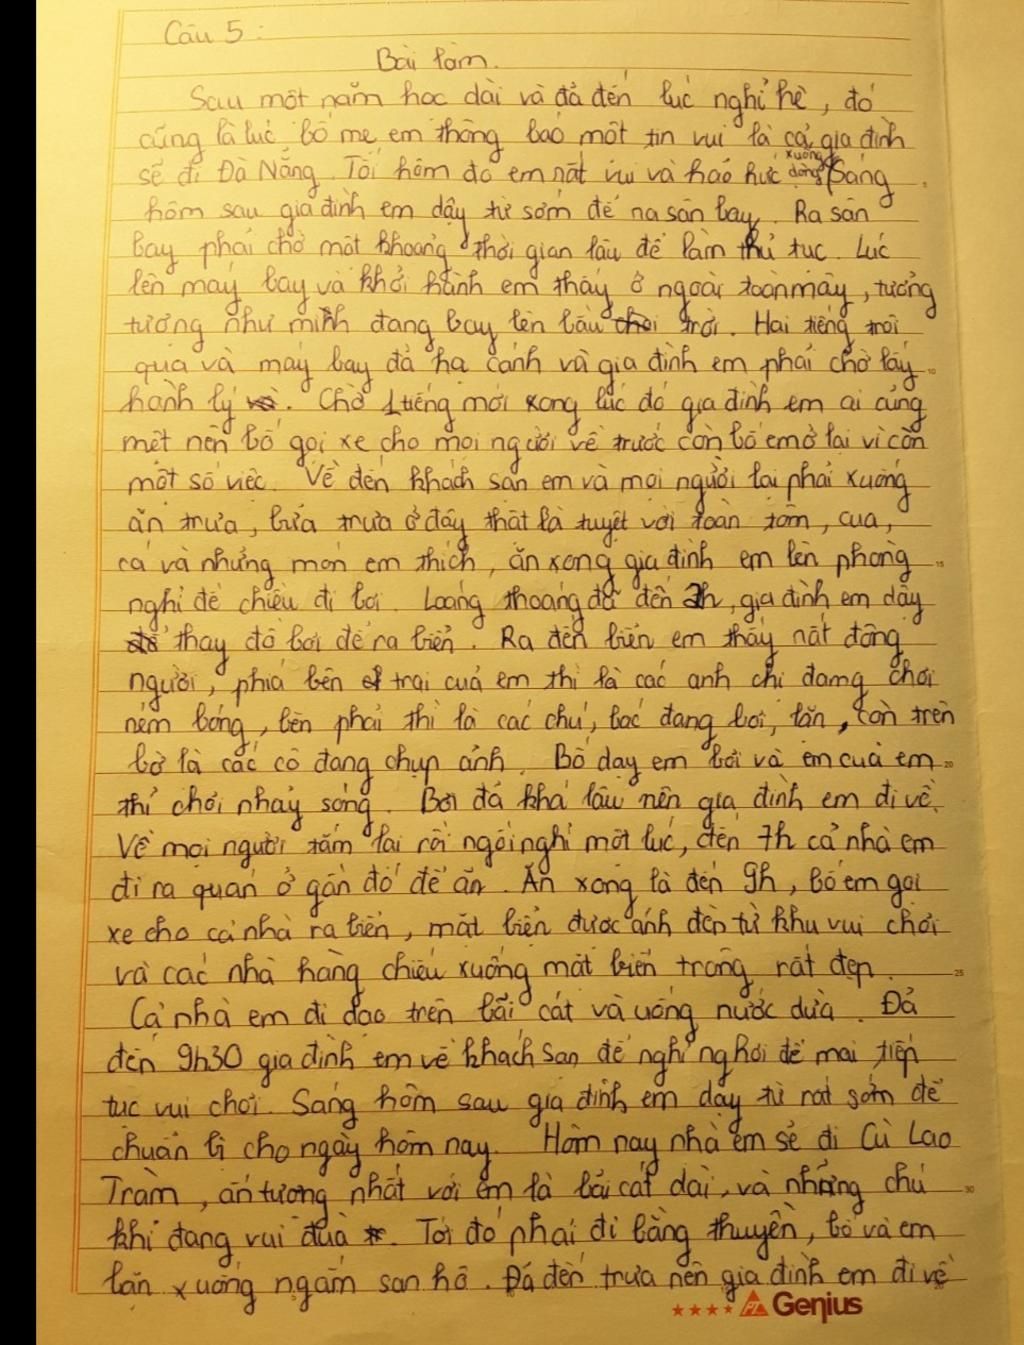 Câu 5 :
Bài làm.
Sau một năm học dài và đã đến lúc nghỉ hè, đó
cũng là lúc bố mẹ em thông báo một tin vui là cả gia đình
sẽ đi Đà Nẵng. Tối hôm đó em rất vui và háo hức xuống dòng Sáng
hôm sau gia đình em dậy từ sớm để na sân bay. Ra sân
bay phải chờ một khoảng thời gian lâu để làm thủ tục. Lúc
lên máy bay và khởi hành em thấy ở ngoài toàn mây, tưởng
tượng như mình đang bay lên bầu trời. Hai tiếng trôi
qua và máy bay đã hạ cánh và gia đình em phải chờ lấy
hành lý. Chờ 1 tiếng mới xong lúc đó gia đình em ai củng
mệt nên bố gọi xe cho mọi người về trước còn bố em ở lại vì còn
một số việc. Về đến khách sạn em và mọi người lại phải xuống
ăn trưa, bữa trưa ở đây thật là tuyệt vời toàn tôm, cua,
cá và những món em thích, ăn xong gia đình em lên phòng
nghỉ để chiều đi bơi. Loáng thoáng đã đến 2h, gia đình em dậy
thay đồ bơi để ra biển. Ra đến biển em thấy nất đông
người, phía bên trái của em thì là các anh chị đang chơi
ném bóng, bên phải thì là các chú, bác đang bơi, lặn, còn trên
bờ là các cô đang chụp ảnh. Bố dạy em bơi và em của em
thì chơi nhảy sóng. Bơi đã khá lâu nên gia đình em đi về.
Về mọi người tắm lại rồi ngồi nghỉ một lúc, đến 7h cả nhà em
đi ra quán ở gần đó để ăn. Ăn xong là đến 9h, bố em gọi
xe cho cả nhà ra biển, mặt biển được ánh đèn từ khu vui chơi
và các nhà hàng chiếu xuống mặt biển trông rất đẹp.
Cả nhà em đi dạo trên bãi cát và uống nước dừa. Đã
đến 9h30 gia đình em về khách sạn để nghỉ nghơi để mai tiếp
tục vui chơi. Sáng hôm sau gia đình em dậy từ rất sớm để
chuẩn bị cho ngày hôm nay. Hôm nay nhà em sẽ đi Cù Lao
Tràm, ấn tượng nhất với em là bãi cát dài, và những chú
khỉ đang vui đùa. Tới đó phải đi bằng thuyền, bố và em
lặn xuống ngắm san hô. Đã đến trưa nên gia đình em đi về
★★★★ PT Genius